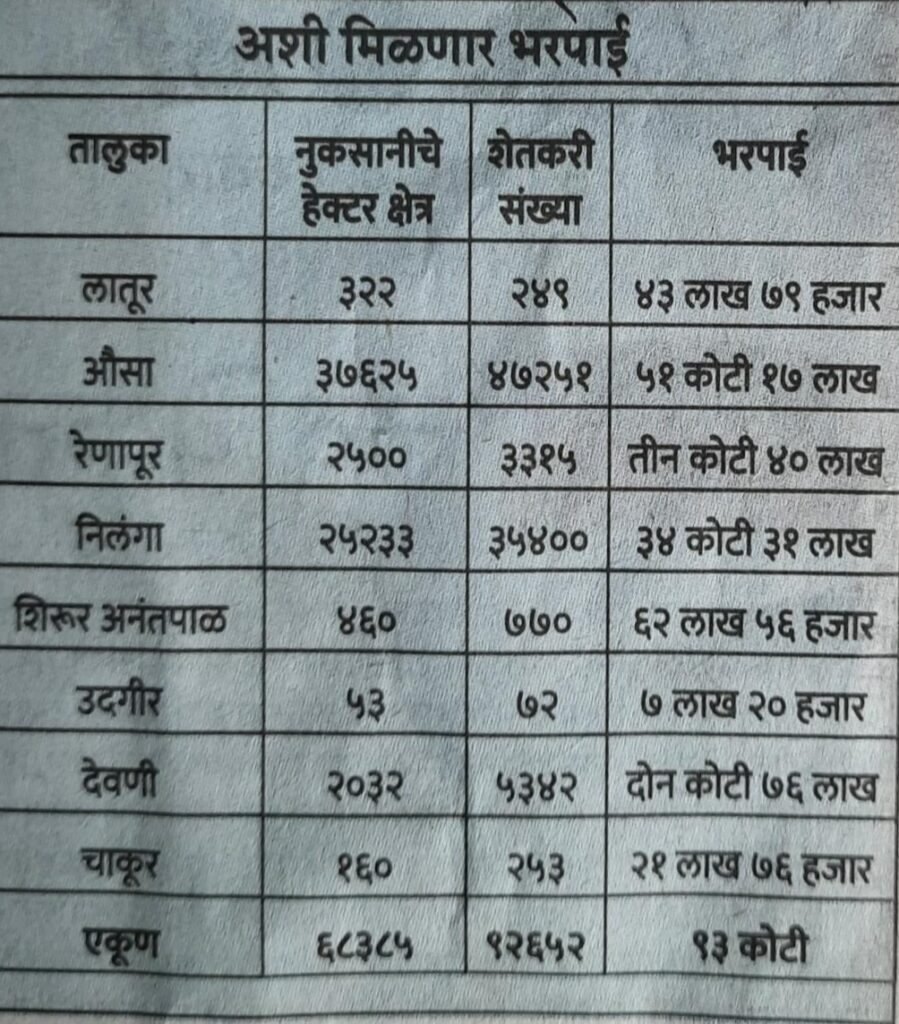 अशी मिळणार भरपाई
तालुका नुकसानीचे हेक्टर क्षेत्र शेतकरी संख्या भरपाई
लातूर ३२२ २४९ ४३ लाख ७९ हजार
औसा ३७६२५ ४७२५१ ५१ कोटी १७ लाख
रेणापूर २५०० ३३१५ तीन कोटी ४० लाख
निलंगा २५२३३ ३५४०० ३४ कोटी ३१ लाख
शिरूर अनंतपाळ ४६० ७७० ६२ लाख ५६ हजार
उदगीर ५३ ७२ ७ लाख २० हजार
देवणी २०३२ ५३४२ दोन कोटी ७६ लाख
चाकूर १६० २५३ २१ लाख ७६ हजार
एकूण ६८३८५ ९२६५२ ९३ कोटी